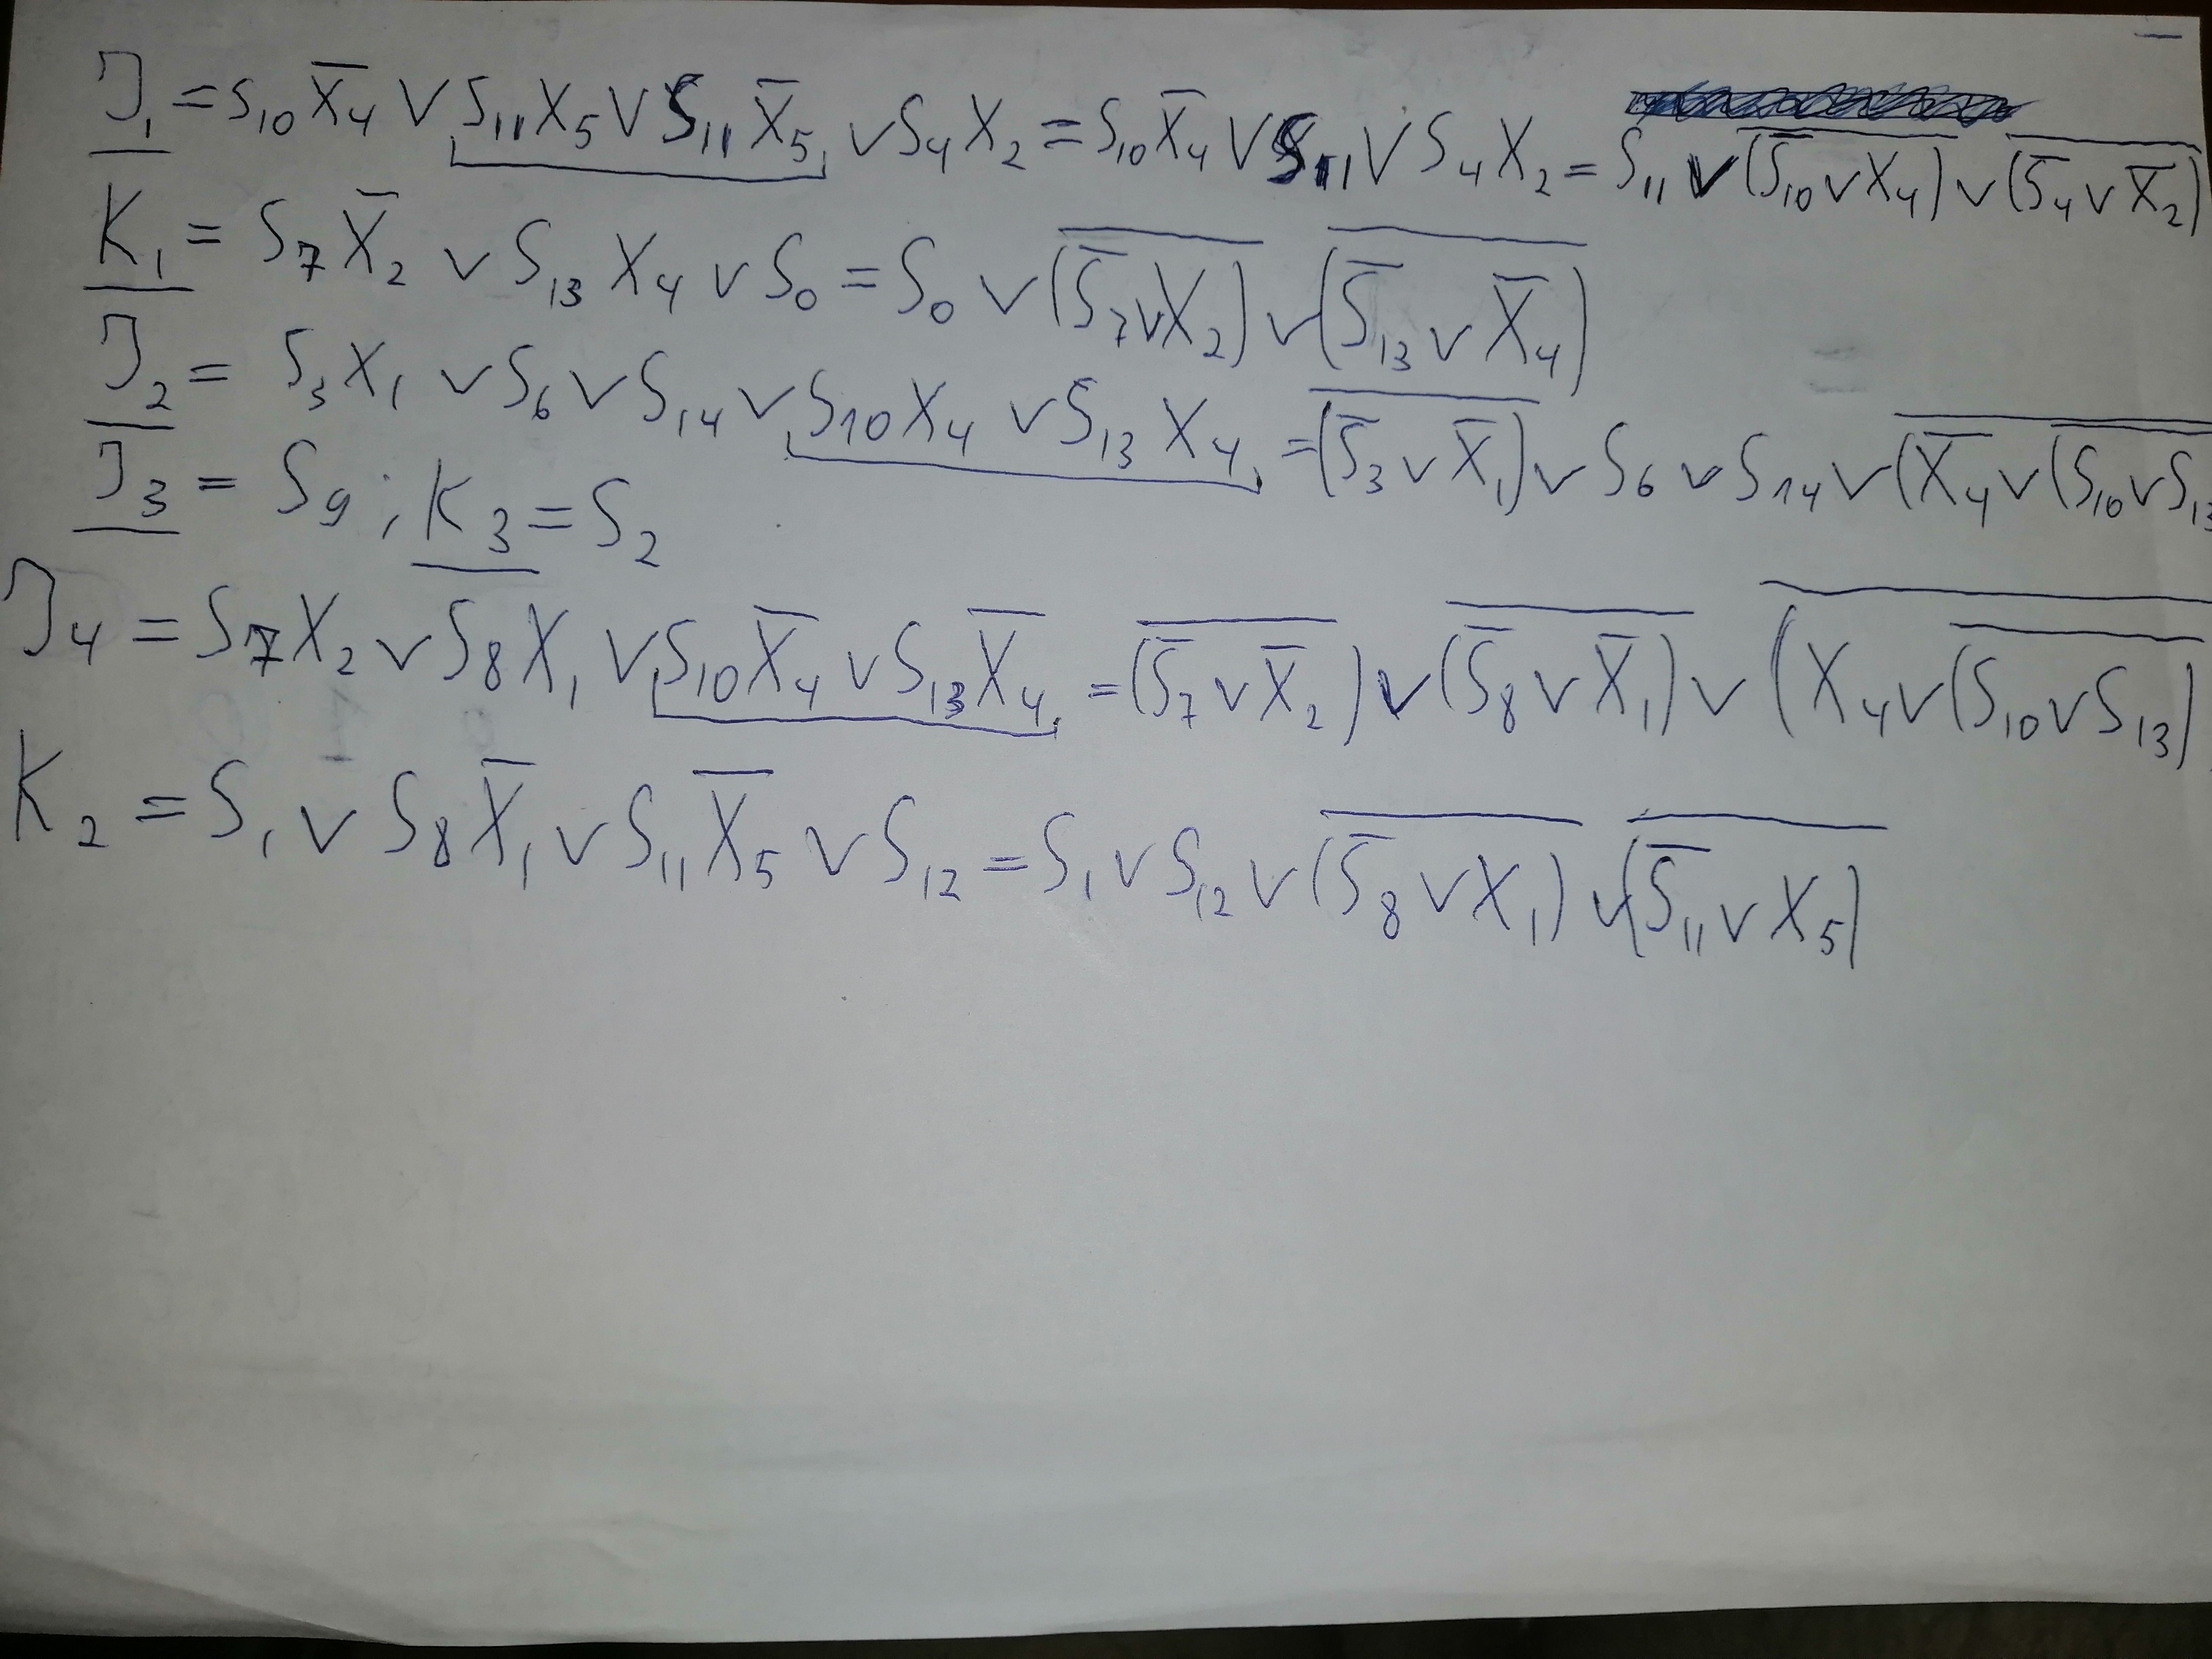 J₁ = S₁₀X̅₄ ∨ S₁₁X₅ ∨ S₁₁X̅₅ ∨ S₄X₂ = S₁₀X̅₄ ∨ S₁₁ ∨ S₄X₂ = S₁₁ ∨ \overline{(S̅₁₀ ∨ X₄)} ∨ \overline{(S̅₄ ∨ X̅₂)}
K₁ = S₇X̅₂ ∨ S₁₃X₄ ∨ S₀ = S₀ ∨ \overline{(S̅₇ ∨ X₂)} ∨ \overline{(S̅₁₃ ∨ X̅₄)}
J₂ = S₃X₁ ∨ S₆ ∨ S₁₄ ∨ S₁₀X₄ ∨ S₁₃X₄ = \overline{(S̅₃ ∨ X̅₁)} ∨ S₆ ∨ S₁₄ ∨ \overline{(X̅₄ ∨ \overline{(S₁₀ ∨ S₁₃}}
J₃ = S₉; K₃ = S₂
J₄ = S₇X₂ ∨ S₈X₁ ∨ S₁₀X̅₄ ∨ S₁₃X̅₄ = \overline{(S̅₇ ∨ X̅₂)} ∨ \overline{(S̅₈ ∨ X̅₁)} ∨ \overline{(X₄ ∨ \overline{(S₁₀ ∨ S₁₃)}}
K₂ = S₁ ∨ S₈X̅₁ ∨ S₁₁X̅₅ ∨ S₁₂ = S₁ ∨ S₁₂ ∨ \overline{(S̅₈ ∨ X₁)} ∨ \overline{(S̅₁₁ ∨ X₅)}